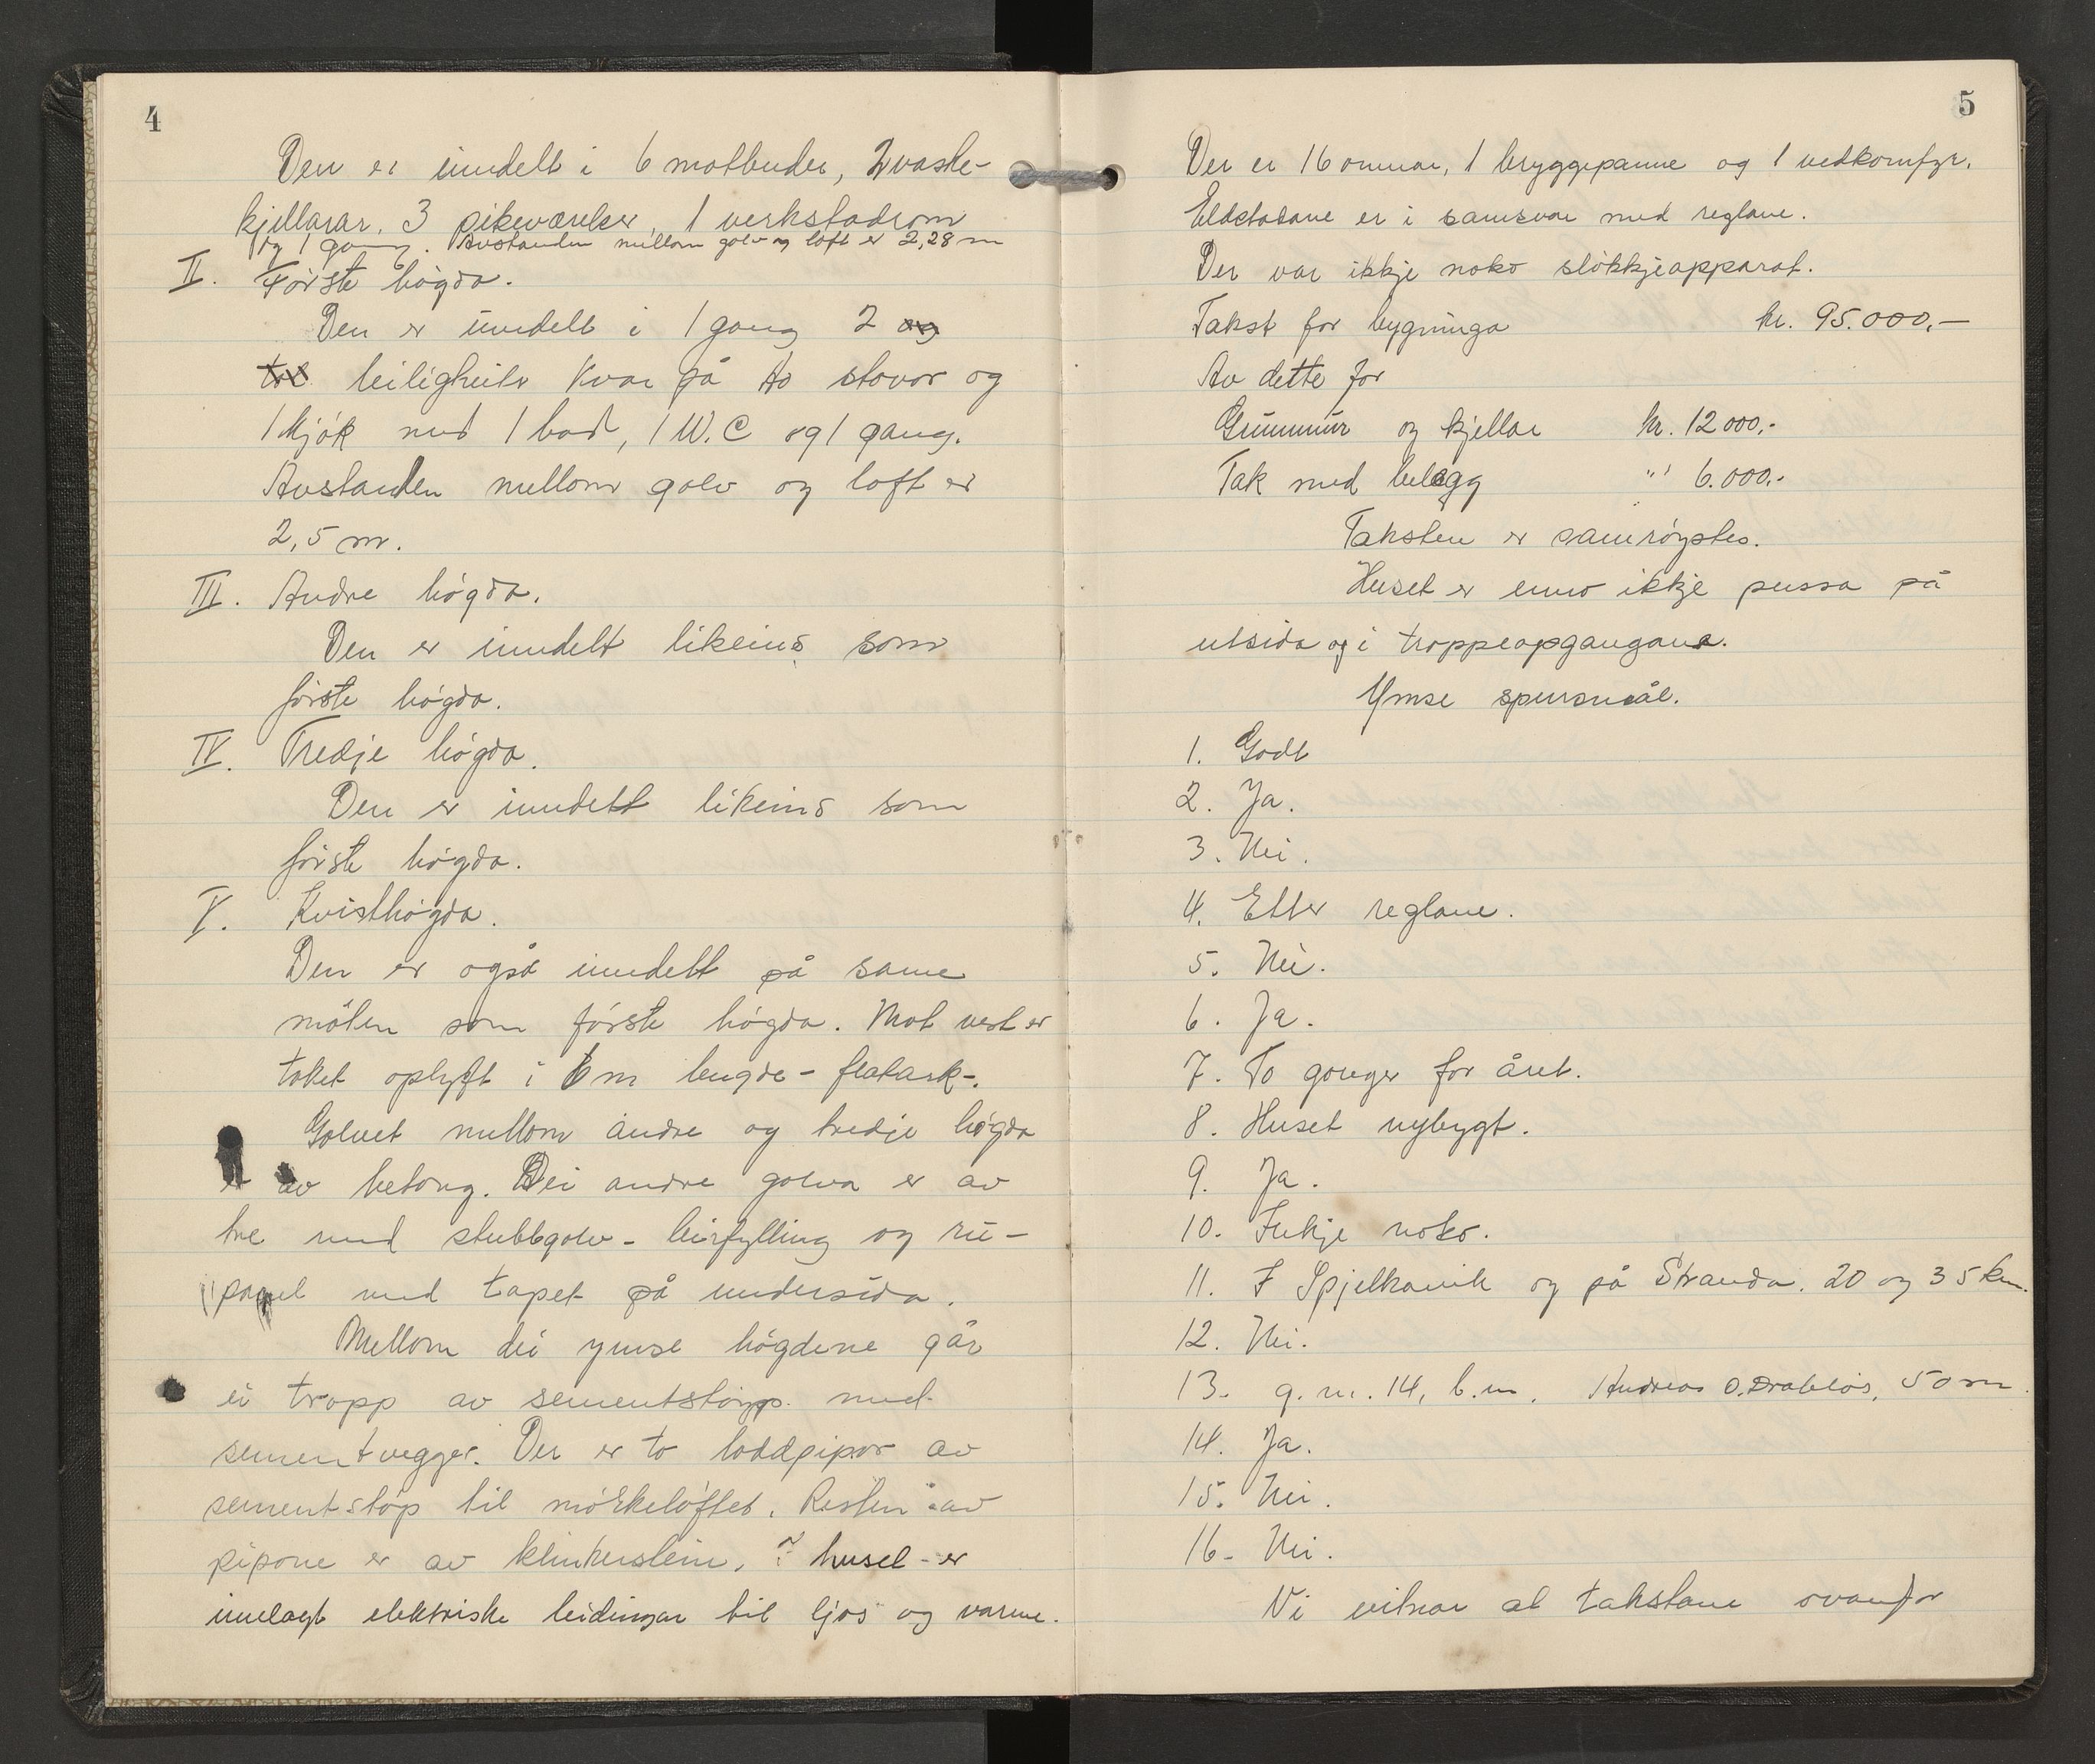 4
Den er inndelt i 6 matbuder, 2 vaske-
kjellarar. 3 pikeværelser, 1 verkstadrom
og 1 gang. Avstanden mellom golv og loft er 2,28 m
II. Første høgda.
Den er inndelt i 1 gang 2 og
tre leiligheiter kvar på to stovor og
1 kjøk med 1 bad, 1 W.C og 1 gang.
Avstanden mellom golv og loft er
2,5 m.
III. Andre høgda.
Den er inndelt likeins som
første høgda.
IV. Tredje høgda.
Den er inndelt likeins som
første høgda.
V. Kvisthøgda.
Den er også inndelt på same
måten som første høgda. Mot vest er
taket oplyft i 6 m lengde - flatark -.
Golvet mellom andre og tredje høgda
er av betong. Dei andre golva er av
tre med stubbgolv - leirfylling og ru-
panel med tapet på undersida.
Mellom dei ymse høgdene går
ei tropp av sementstøypp med
sementvegger. Der er to loddpipor av
sementstøp til mørkeloftet. Resten av
pipone er av klinkerstein. I huset er
innlagt elektriske leidingar til ljos og varme.
5
Der er 16 omnar, 1 bryggepanne og 1 vedkomfyr.
Eldstadane er i samsvar med reglane.
Der var ikkje noko sløkkjeapparat.
Takst for bygninga kr. 95.000,-
Av dette for
Grunnmur og kjellar kr. 12 000,-
Tak med belegg " 6.000,-
Taksten er samrøystes.
Huset er enno ikkje pussa på
utsida og i troppeopgangane.
Ymse spursmål.
1. Godt
2. Ja.
3. Nei.
4. Etter reglane.
5. Nei.
6. Ja.
7. To gonger for året.
8. Huset nybygt.
9. Ja.
10. Inkje noko.
11. I Spjelkavik og på Stranda. 20 og 35 km.
12. Nei.
13. g. nr. 14, b. nr. Andreas O. Drabløs, 50 m.
14. Ja.
15. Nei.
16. Nei.
Vi vitnar at takstane ovanfor